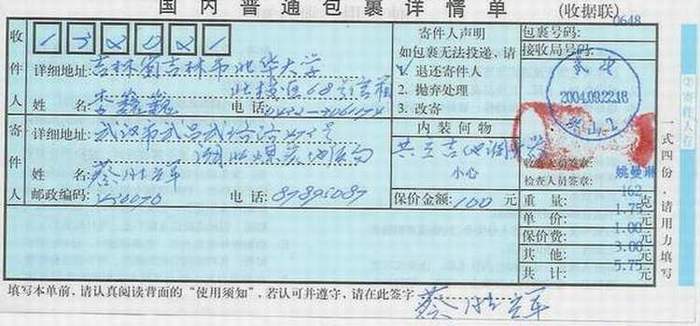 国内普通包裹详情单 (收据联)
0648
收件人
132021
详细地址: 吉林省吉林市北华大学
北校区68号信箱
姓 名 李巍巍 电 话:
寄件人
详细地址: 武汉市武昌武珞路
湖北煤炭地质局
姓 名 蔡胜军
邮政编码: 430070 电 话: 87895087
寄件人声明
如包裹无法投递,请
1. 退还寄件人
2. 抛弃处理
3. 改寄
内装何物
小心
保价金额: 100 元
包裹号码:
接收局号码:
2004.09.22.16
收检人员签章:
检查人员签章: 姚曼琳
重 量: 162 克
单 价: 1.75 元
保价费: 1.00 元
其 他: 3.00 元
共 计: 5.75 元
一式四份,请用力填写
填写本单前,请认真阅读背面的“使用须知”,若认可并遵守,请在此签字 蔡胜军